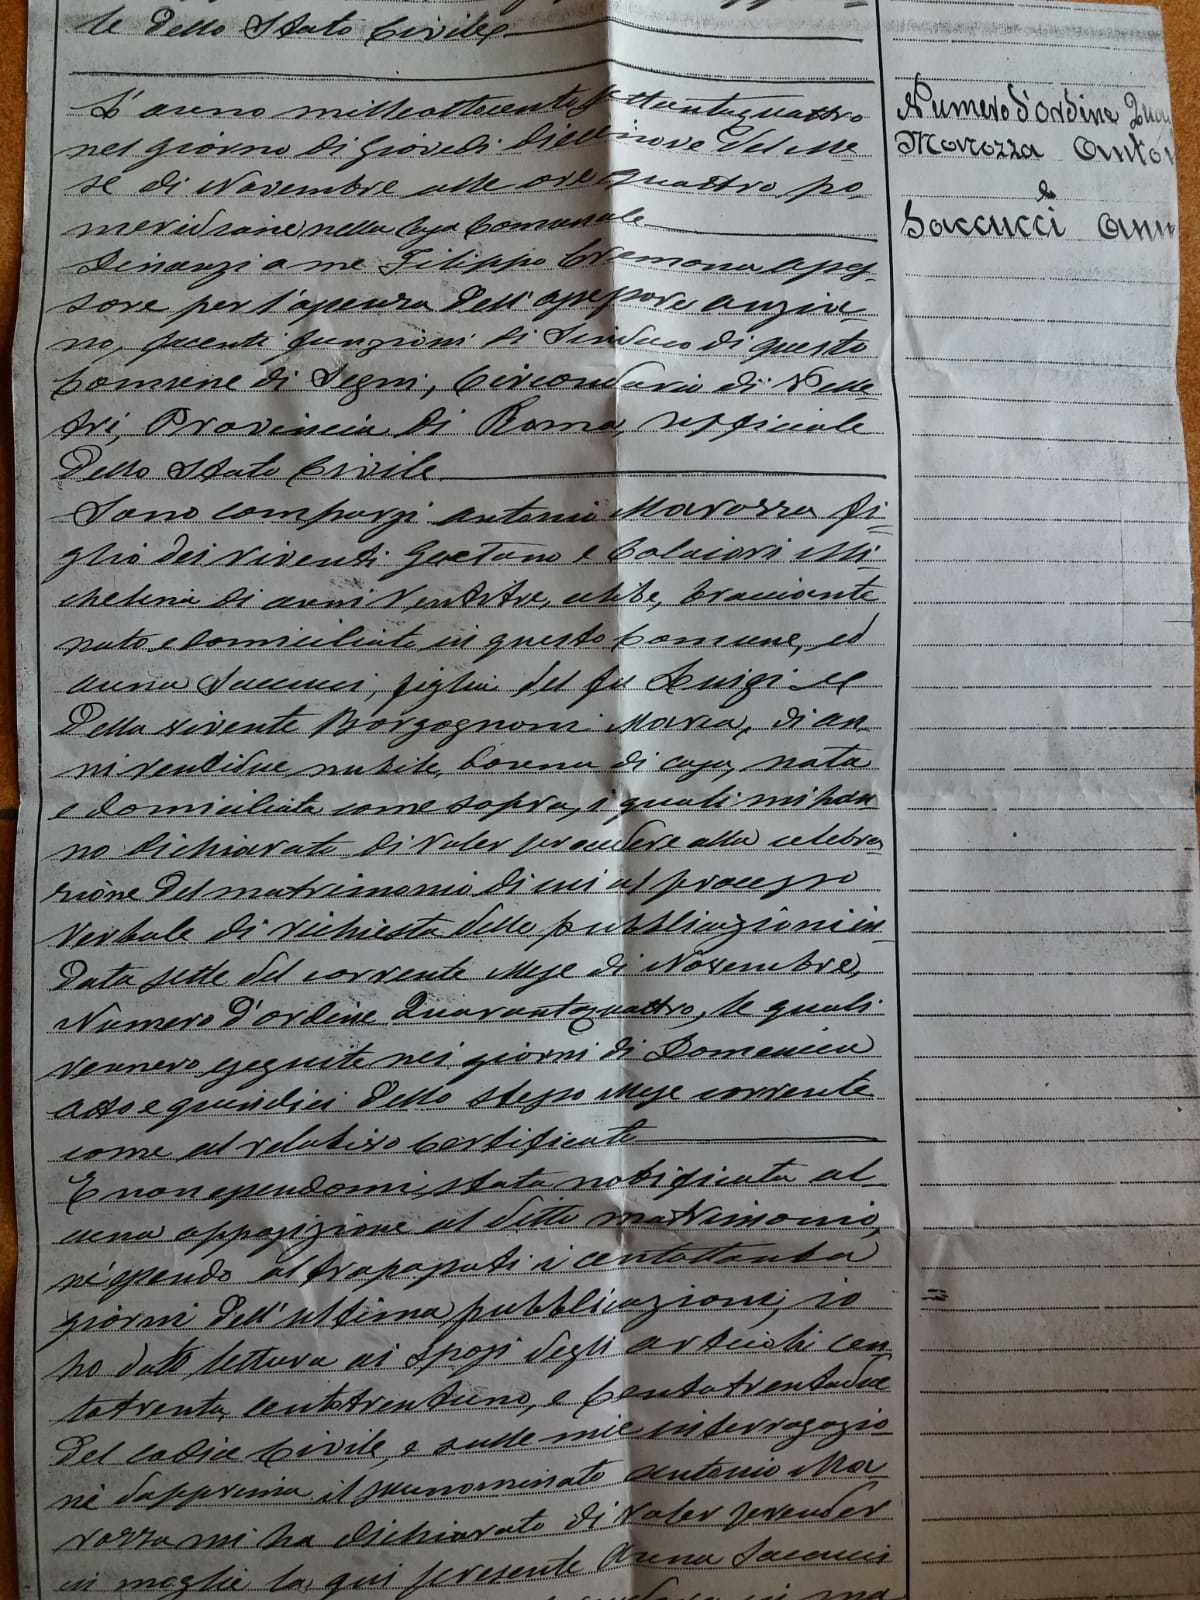 le dello Stato Civile
L'anno milleottocento settantaquattro
nel giorno di Giovedi diecinove del Me-
se di Novembre alle ore quattro po-
meridiane nella Casa Comunale
Dinanzi a me Filippo Cremona asses-
sore per l'assenza dell'assessore anzia-
no, facente funzioni di Sindaco di questo
Comune di Segni, Circondario di Velle-
tri, Provincia di Roma, ufficiale
dello Stato Civile
Sono comparsi Antonio Marozza fi-
glio dei viventi Gaetano e Colaiori Mi-
chelina di anni ventitre, celibe, bracciante
nato e domiciliato in questo Comune, ed
Anna Saccucci, figlia del fu Luigi e
della vivente Borgognoni Maria, di an-
ni ventidue, nubile, donna di casa, nata
e domiciliata come sopra, i quali mi han-
no dichiarato di voler procedere alla celebra-
zione del matrimonio di cui al processo
verbale di richiesta delle pubblicazioni in
data sette del corrente Mese di Novembre,
Numero d'ordine Quarantaquattro, le quali
vennero eseguite nei giorni di Domenica
otto e quindici dello stesso Mese corrente
come al relativo Certificato
E non essendomi stata notificata al-
cuna opposizione al detto matrimonio,
nè essendo oltrapassati i centottanta
giorni dell'ultima pubblicazione, io
ho dato lettura ai Sposi degli articoli cen-
totrenta, centotrentuno, e centotrentadue
del codice Civile, e sulle mie interrogazio-
ni dapprima il sunnominato Antonio Ma-
rozza mi ha dichiarato di voler prender
in moglie la qui presente Anna Saccucci
Numero d'ordine
Marozza Anto
e
Saccucci Ann